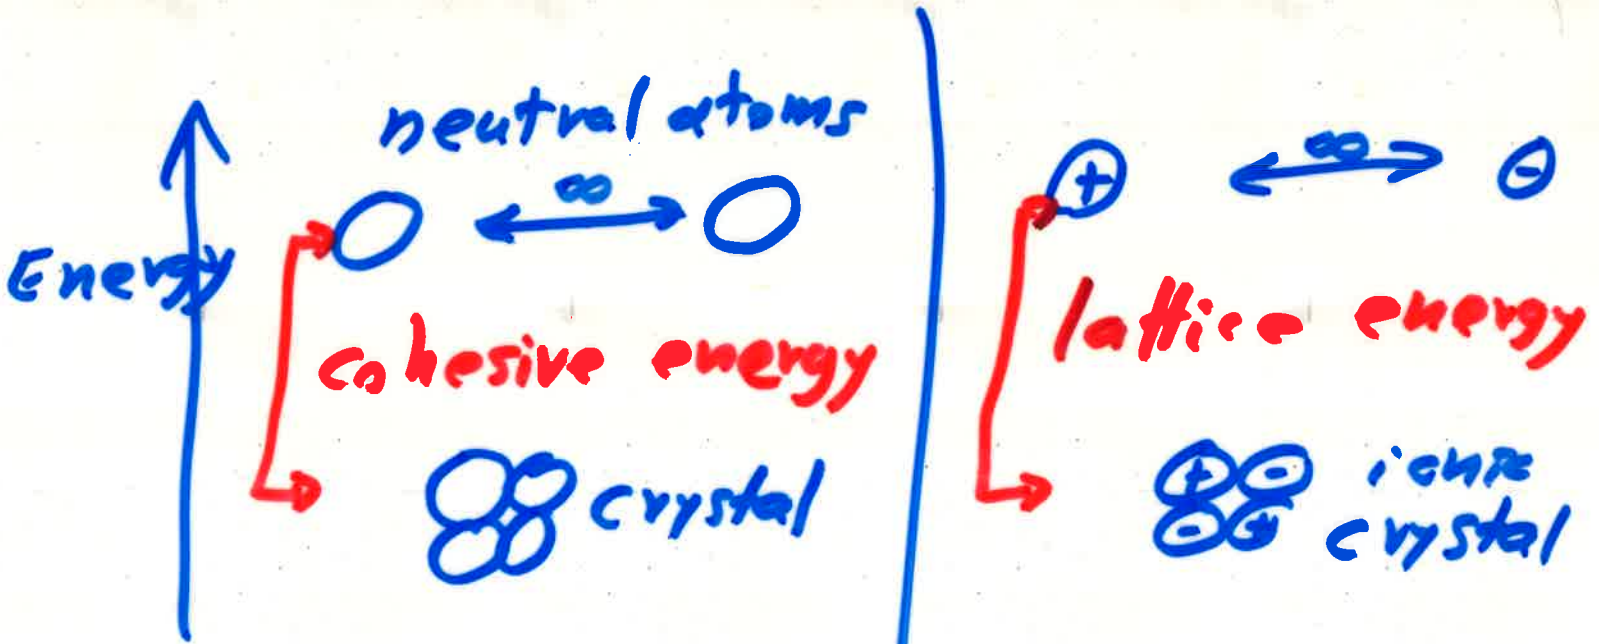 neutral atoms
∞
Energy
cohesive energy
crystal
+
∞
-
lattice energy
+ - ionic
- + crystal